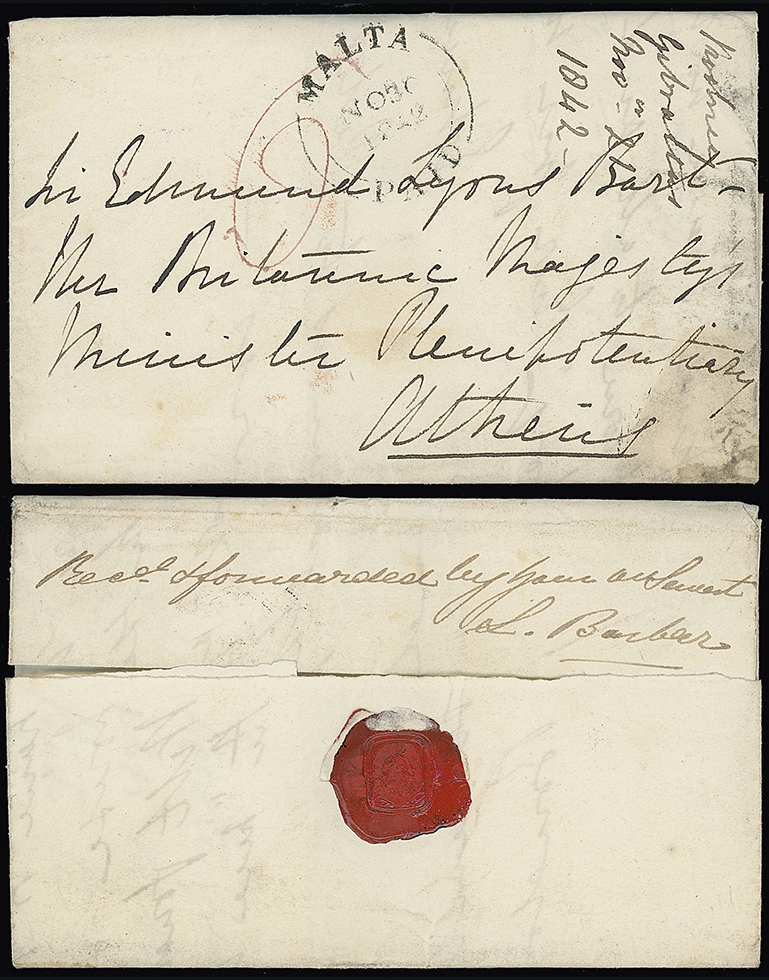 MALTA
NO30
1842
PAID
Gibraltar
Nov
1842
Sir Edmund Lyons Bart
Her Britannic Majesty's
Minister Plenipotentiary
Athens
Recd & forwarded by your ob Servant
L. Barber